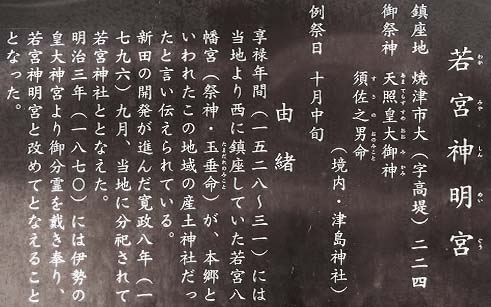 若宮神明宮
わかみやしんめいぐう
鎮座地 焼津市大(字高堤)二二四
御祭神 天照皇大御神
あまてらすすめおおみかみ
須佐之男命
すさのおのみこと
(境内・津島神社)
例祭日 十月中旬
由緒
享禄年間(一五二八〜三一)には
当地より西に鎮座していた若宮八
幡宮(祭神・玉垂命)が、本郷と
たまだれのみこと
いわれたこの地域の産土神社だっ
たと言い伝えられている。
新田の開発が進んだ寛政八年(一
七九六)九月、当地に分祀されて
若宮神社ととなえた。
明治三年(一八七〇)には伊勢の
皇大神宮より御分霊を戴き奉り、
若宮神明宮と改めてとなえること
となった。